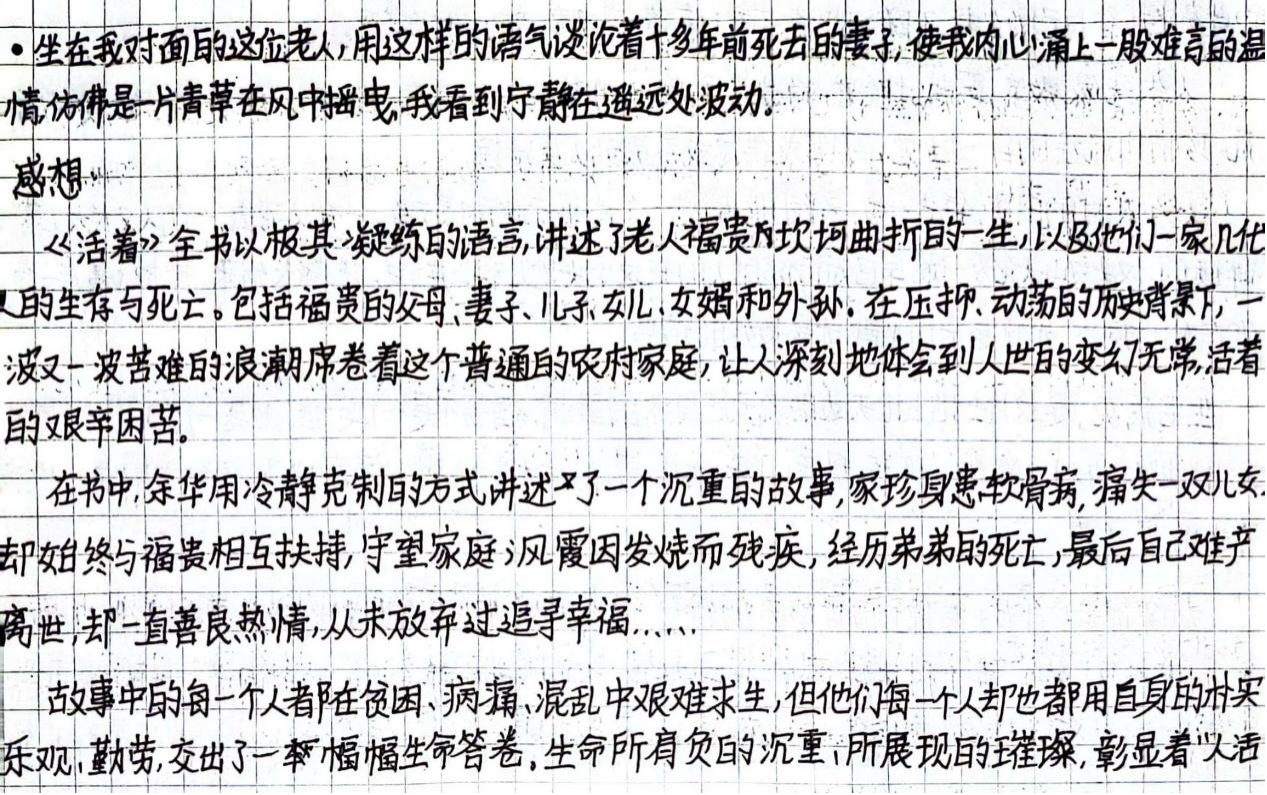 • 坐在我对面的这位老人,用这样的语气谈论着十多年前死去的妻子,使我内心涌上一股难言的温
情,仿佛是一片青草在风中摇曳,我看到宁静在遥远处波动。
感想
《活着》全书以极其凝练的语言,讲述了老人福贵坎坷曲折的一生,以及他们一家几代
人的生存与死亡。包括福贵的父母、妻子、儿子、女儿、女婿和外孙。在压抑、动荡的历史背景下,一
波又一波苦难的浪潮席卷着这个普通的农村家庭,让人深刻地体会到人世的变幻无常,活着
的艰辛困苦。
在书中,余华用冷静克制的方式讲述了一个沉重的故事,家珍身患软骨病,痛失一双儿女,
却始终与福贵相互扶持,守望家庭;凤霞因发烧而残疾,经历弟弟的死亡,最后自己难产
离世,却一直善良热情,从未放弃过追寻幸福......
故事中的每一个人都在贫困、病痛、混乱中艰难求生,但他们每一个人却也都用自身的朴实
乐观、勤劳,交出了一幅幅生命答卷。生命所肩负的沉重,所展现的璀璨,彰显着“人活